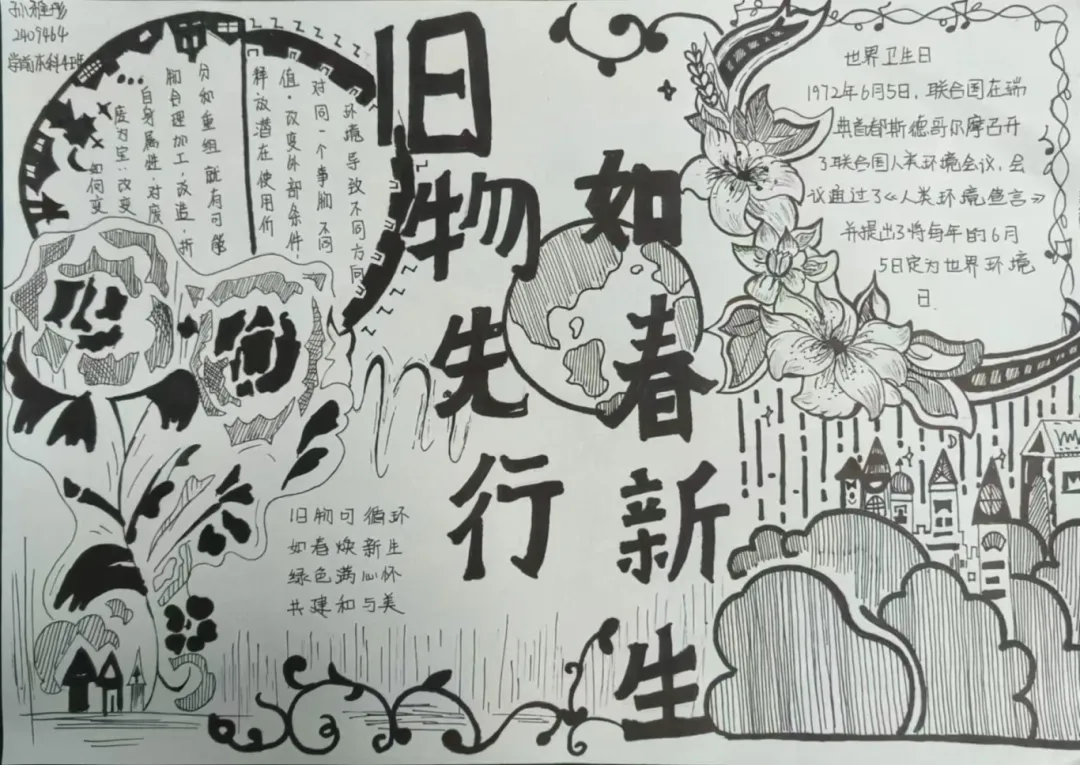 孙雅彤
2409464
学前本科4班
旧物先行
如春新生
如何变
废为宝:改变
自身属性·对废
物合理加工,改造·拆
分和重组 就有可能
释·放潜在使用价
值·改变外部条件
对同一个事物 不同
环境导致不同方向
世界卫生日
1972年6月5日,联合国在瑞
典首都斯德哥尔摩召开
了联合国人类环境会议,会
议通过了《人类环境宣言》
并提出了将每年的6月
5日定为世界环境
日
旧物可循环
如春焕新生
绿色满心怀
共建和与美